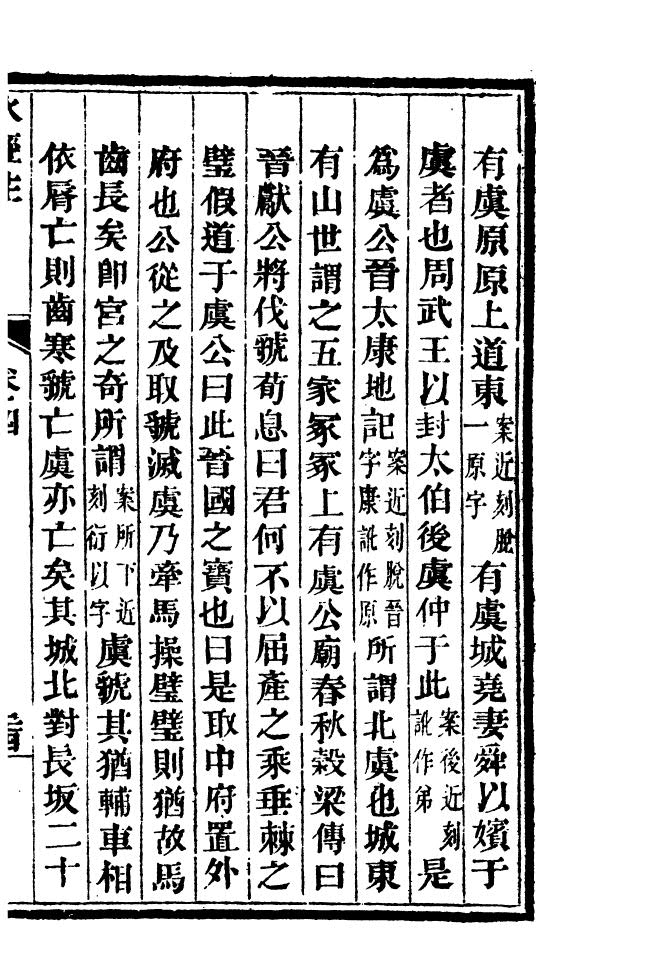 有虞原原上道東案近刻脫一原字有虞城堯妻舜以嬪于
虞者也周武王以封太伯後虞仲于此案後近刻訛作弟是
爲虞公晉太康地記案近刻脫晉字康訛作原所謂北虞也城東
有山世謂之五家冢冢上有虞公廟春秋穀梁傳曰
晉獻公將伐虢荀息曰君何不以屈產之乘垂棘之
璧假道于虞公曰此晉國之寶也曰是取中府置外
府也公從之及取虢滅虞乃牽馬操璧璧則猶故馬
齒長矣卽宮之奇所謂案所下近刻衍以字虞虢其猶輔車相
依脣亡則齒寒虢亡虞亦亡矣其城北對長坂二十
水經注 卷四